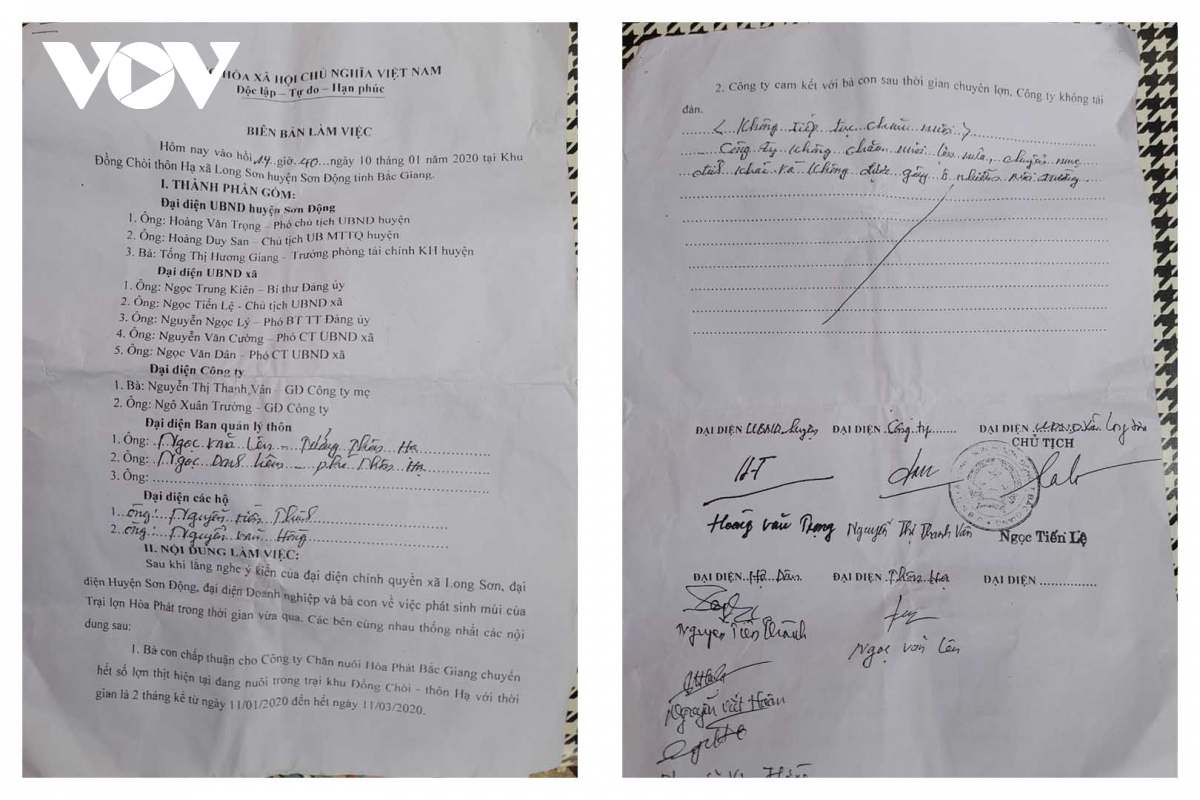 VOV
HÒA XÃ HỘI CHỦ NGHĨA VIỆT NAM
Độc lập – Tự do – Hạn phúc
BIÊN BẢN LÀM VIỆC
Hôm nay vào hồi 14 giờ 40 ngày 10 tháng 01 năm 2020 tại Khu
Đồng Chòi thôn Hạ xã Long Sơn huyện Sơn Động tỉnh Bắc Giang.
I. THÀNH PHẦN GỒM:
Đại diện UBND huyện Sơn Động
1. Ông: Hoàng Văn Trọng – Phó chủ tịch UBND huyện
2. Ông: Hoàng Duy San – Chủ tịch UB MTTQ huyện
3. Bà: Tống Thị Hương Giang – Trưởng phòng tài chính KH huyện
Đại diện UBND xã
1. Ông: Ngọc Trung Kiên – Bí thư Đảng ủy
2. Ông: Ngọc Tiến Lệ - Chủ tịch UBND xã
3. Ông: Nguyễn Ngọc Lý – Phó BT TT Đảng ủy
4. Ông: Nguyễn Văn Cường – Phó CT UBND xã
5. Ông: Ngọc Văn Dân – Phó CT UBND xã
Đại diện Công ty
1. Bà: Nguyễn Thị Thanh Vân – GĐ Công ty mẹ
2. Ông: Ngô Xuân Trường – GĐ Công ty
Đại diện Ban quản lý thôn
1. Ông: Ngọc Văn Lên – thôn Hạ
2. Ông: Ngọc – phó thôn Hạ
3. Ông:
Đại diện các hộ
1. Ông: Nguyễn Tiến
2. Ông: Nguyễn Văn
II. NỘI DUNG LÀM VIỆC:
Sau khi lắng nghe ý kiến của đại diện chính quyền xã Long Sơn, đại
diện Huyện Sơn Động, đại diện Doanh nghiệp và bà con về việc phát sinh mùi của
Trại lợn Hòa Phát trong thời gian vừa qua. Các bên cùng nhau thống nhất các nội
dung sau:
1. Bà con chấp thuận cho Công ty Chăn nuôi Hòa Phát Bắc Giang chuyển
hết số lợn thịt hiện tại đang nuôi trong trại khu Đồng Chòi - thôn Hạ với thời
gian là 2 tháng kể từ ngày 11/01/2020 đến hết ngày 11/03/2020.
2. Công ty cam kết với bà con sau thời gian chuyển lợn, Công ty không tái
đàn.
< Không tiếp tục chăn nuôi >
- Công ty không chăn nuôi lợn nữa, chuyển mục
đích khác và không được gây ô nhiễm môi trường.
ĐẠI DIỆN UBND huyện ĐẠI DIỆN Công ty ĐẠI DIỆN UBND xã Long Sơn
CHỦ TỊCH
Hoàng Văn Trọng Nguyễn Thị Thanh Vân Ngọc Tiến Lệ
ĐẠI DIỆN Hộ Dân ĐẠI DIỆN thôn Hạ ĐẠI DIỆN
Nguyễn Tiến Thành
Ngọc Văn Lên
Nguyễn Viết